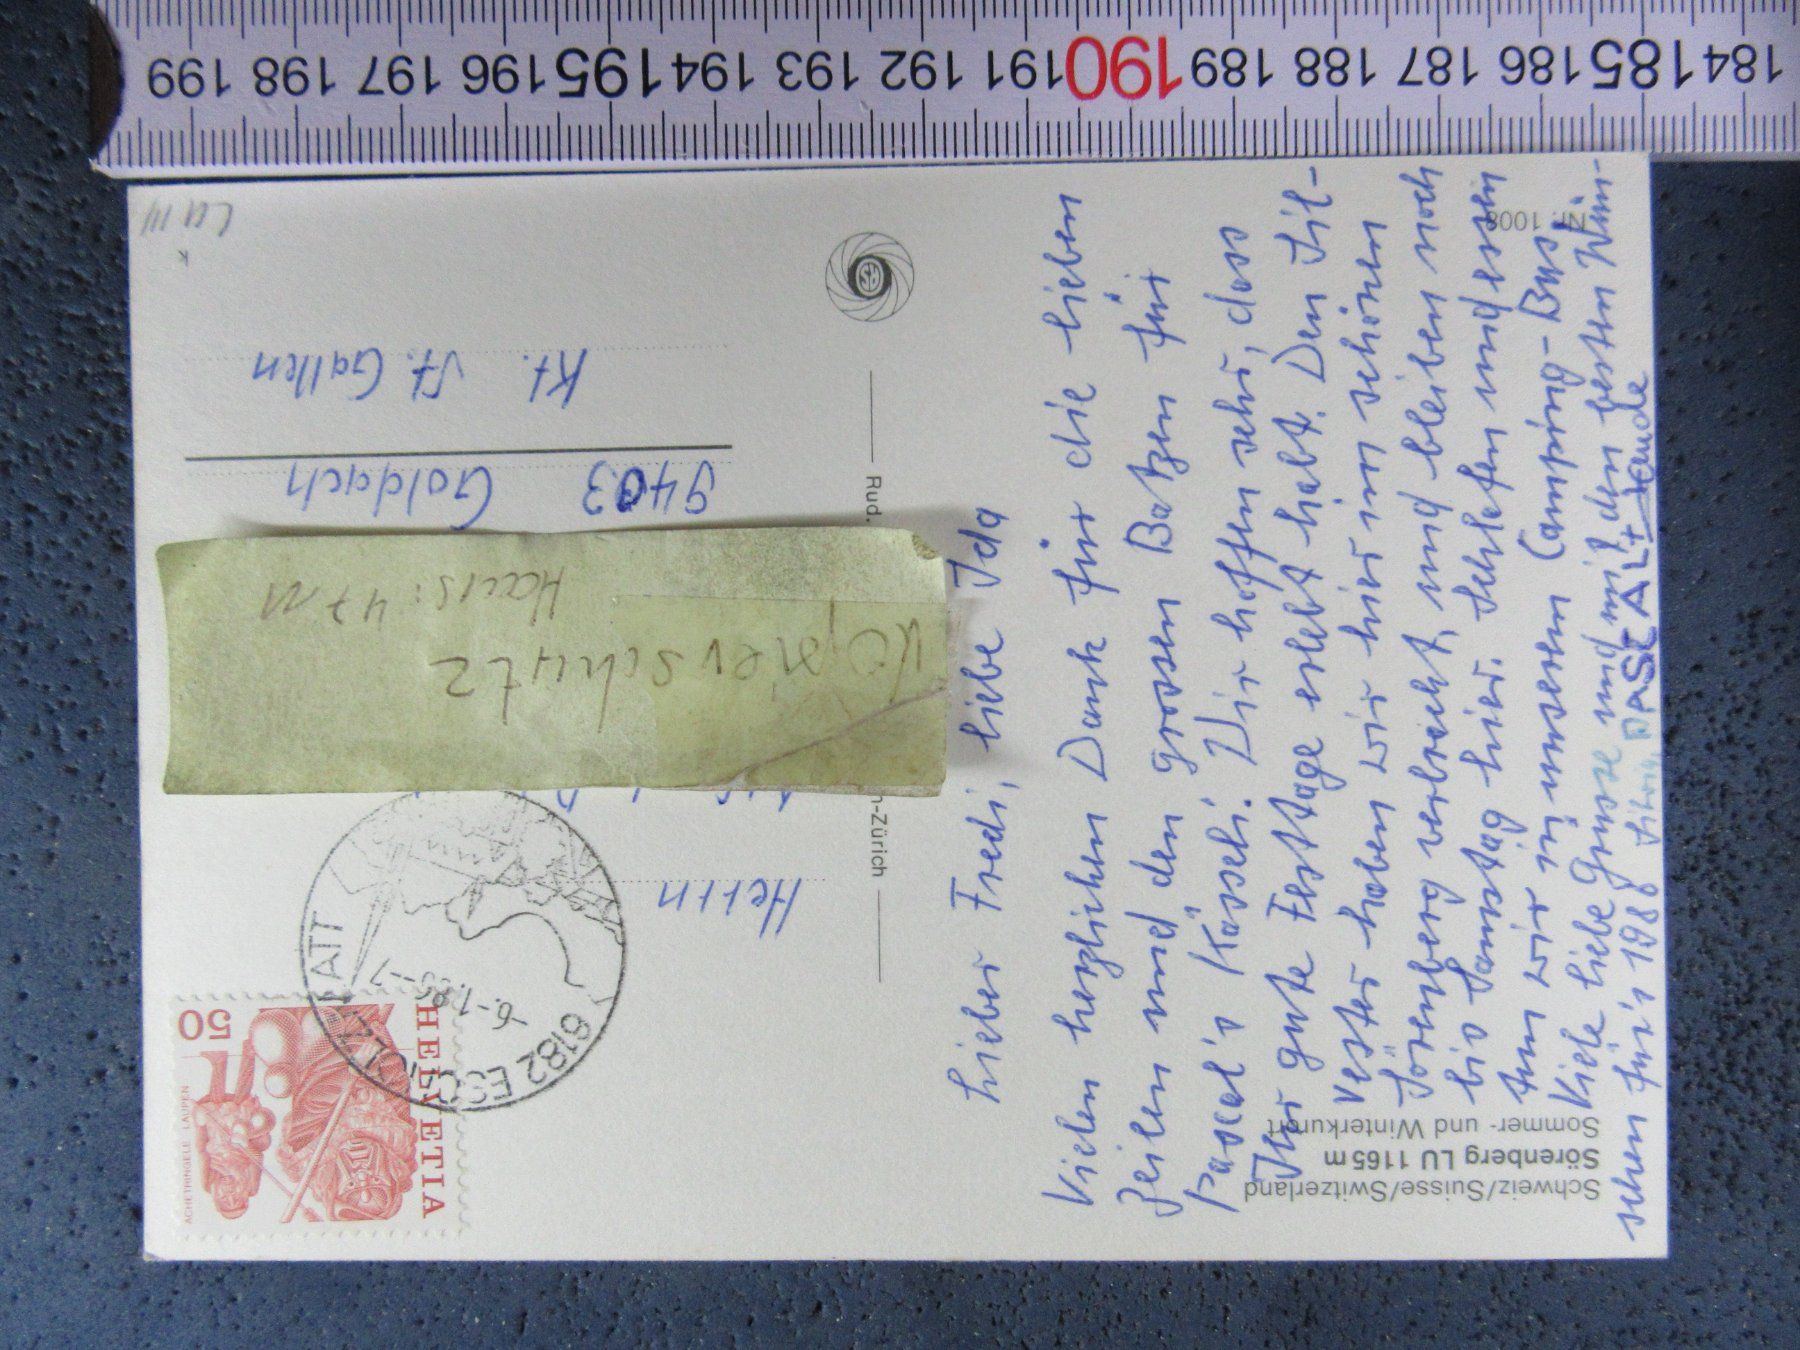 199 198 197 196 195 194 193 192 191 190 189 188 187 186 185 184
LU III
Kt. St. Gallen
9403 Goldach
Kopierschutz
Haus: 47M
Herrn
HELVETIA
50
ACHETRINGELE LAUPEN
6182 ESCHOLZMATT
-6.-1.88-7
Rud.
n-Zürich
1008
Schweiz/Suisse/Switzerland
Sörenberg LU 1165m
Sommer- und Winterkurort
Lieber Fredi, liebe Ida
Vielen herzlichen Dank für die lieben
Zeilen und den grossen Batzen für
Pascal's Kässeli. Wir hoffen sehr, dass
Ihr gute Festtage erlebt habt. Den Sil-
vester haben wir hier im schönen
Sörenberg verbracht, und bleiben noch
bis Samstag hier. Schlafen und essen
tun wir in unserem Camping-Bus.
Viele liebe Grüsse und mit den besten Wün-
schen für's 1988 Silvia, PASCAL+